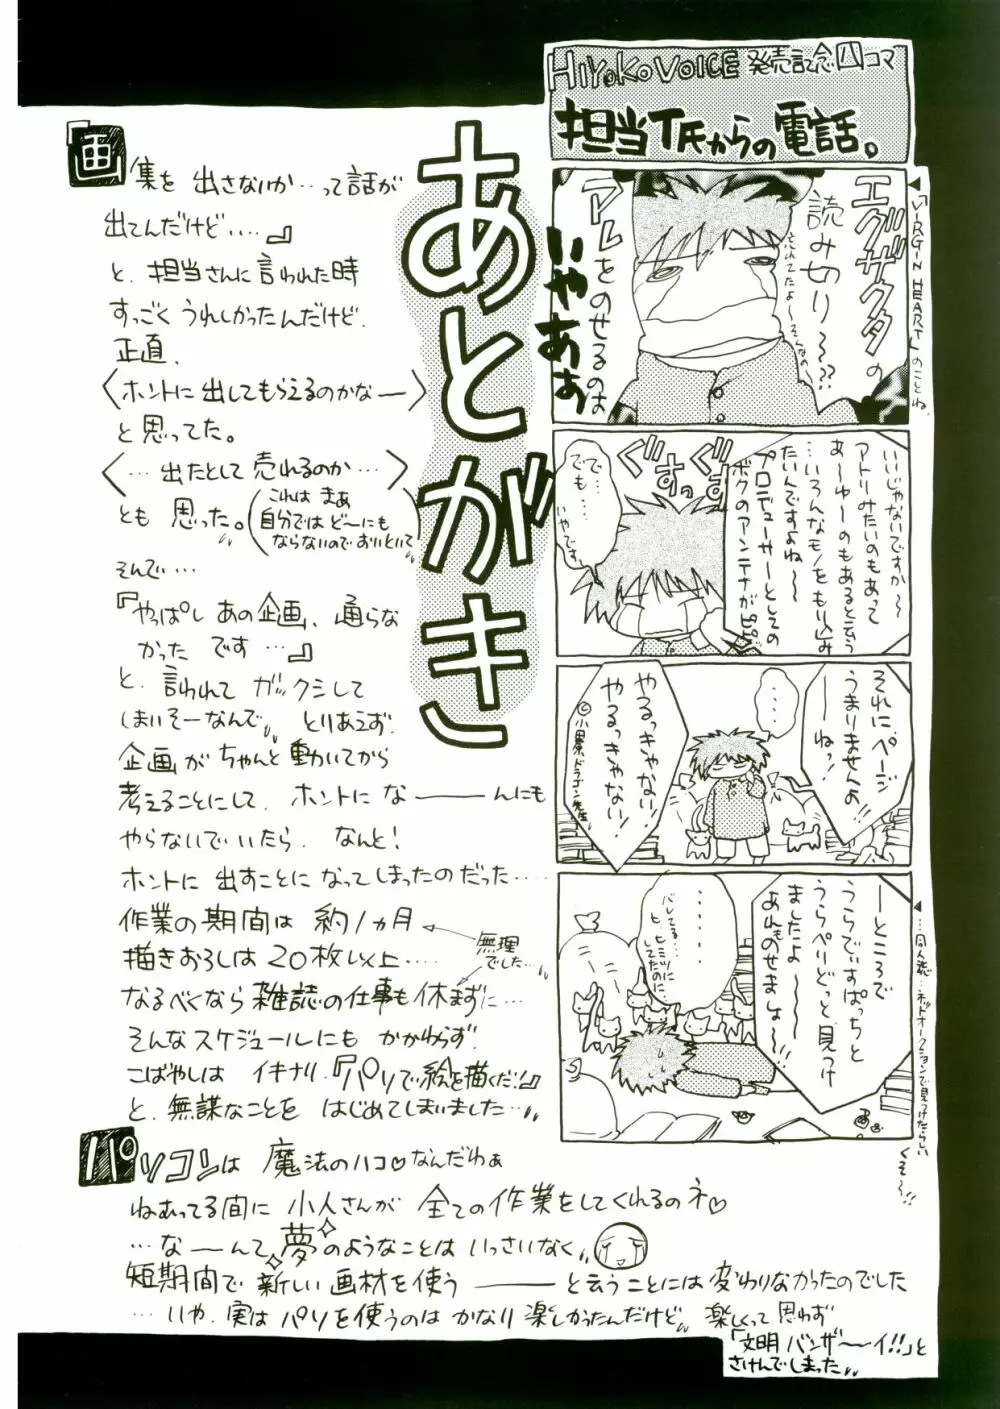 HiYoKo VOICE 発売記念四コマ
担当T氏からの電話。
エグザクタの
読み切り〜〜??
忘れてたよ〜そんなの
アレをのせるのは
いやあぁ
◀『VIRGIN HEART』のことね。
いいじゃないですか〜
アトリみたいのもあって
あ〜ゆーのもあると云う
…いろんなモノをもり込み
たいんですよね〜〜
プロデューサーとしての
ボクのアンテナが
ぐすぐす
ぐすっ
で…
でも…
いやです。
それに、ページ
うまりませんよ
ーーねっ!
・・・・
やるっきゃない!
やるっきゃない!
©小田原ドラゴン先生
ーところで
うらでぃすぱっちと
うらぺりどっと見つけ
ましたよ〜〜
あれものせましょ〜〜!!
・・・・・・
バレてる…
ヒ…ヒミツに
してたのに
◀…同人誌。…ネットオークションで見つけたらしい
くそ〜!!
あとがき
『画集を 出さないか…って話が
出てんだけど‥‥』
と、担当さんに言われた時
すっごく うれしかったんだけど、
正直、
〈ホントに 出してもらえるのかなー〉
と思ってた。
〈…出たとして 売れるのか…〉
とも 思った。(これは まぁ
自分では ど〜にも
ならないので おいといて)
そんで…
『やっぱし あの企画、通らな
かった です…』
と、言われて ガックシして
しまいそーなんで、とりあえず、
企画が ちゃんと動いてから
考えることにして、ホントに なーーーんにも
やらないでいたら、なんと!
ホントに 出すことに なってしまったのだった‥‥
作業の期間は 約1ヵ月
描きおろしは 20枚以上‥‥
無理
でした…
なるべくなら 雑誌の仕事も休まずに…
そんなスケジュールにも かかわらず、
こばやしは イキナリ、『パソで絵を描くだ!』
と、無謀なことを はじめてしまいました…
パソコンは 魔法のハコ♡なんだわぁ
ねむってる間に 小人さんが 全ての作業をしてくれるのネ♡
…なーーんて 夢のようなことは いっさいなく
短期間で 新しい画材を使う ーーー と云うことには 変わりなかったのでした
…いや、実は パソを使うのは かなり楽しかったんだけど、楽しくって 思わず
「文明 バンザ〜〜イ!!」と
さけんでしまった